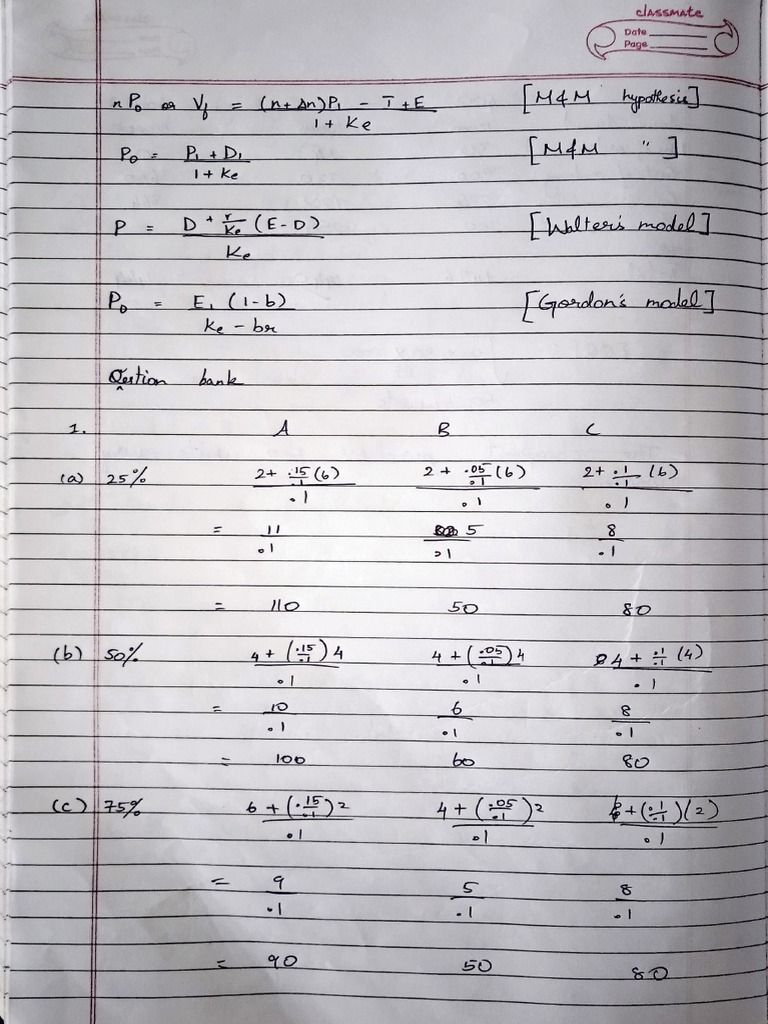 classmate
Date
Page
nP₀ or Vf = (n+Δn)P₁ - I + E / 1 + Ke [M&M hypothesis]
P₀ = P₁ + D₁ / 1 + Ke [M&M " ]
P = D + r/Ke (E-D) / Ke [Walter's model]
P₀ = E₁ (1-b) / Ke - br [Gordon's model]
Qestion bank
1. A B C
(a) 25% 2+ .15/.1 (6) / .1 2 + .05/.1 (6) / .1 2+ .1/.1 (6) / .1
= 11/.1 5/.1 8/.1
= 110 50 80
(b) 50% 4 + (.15/.1) 4 / .1 4 + (.05/.1) 4 / .1 4 + .1/.1 (4) / .1
= 10/.1 6/.1 8/.1
= 100 60 80
(c) 75% 6 + (.15/.1) 2 / .1 4 + (.05/.1) 2 / .1 6 + (.1/.1)(2) / .1
= 9/.1 5/.1 8/.1
= 90 50 80